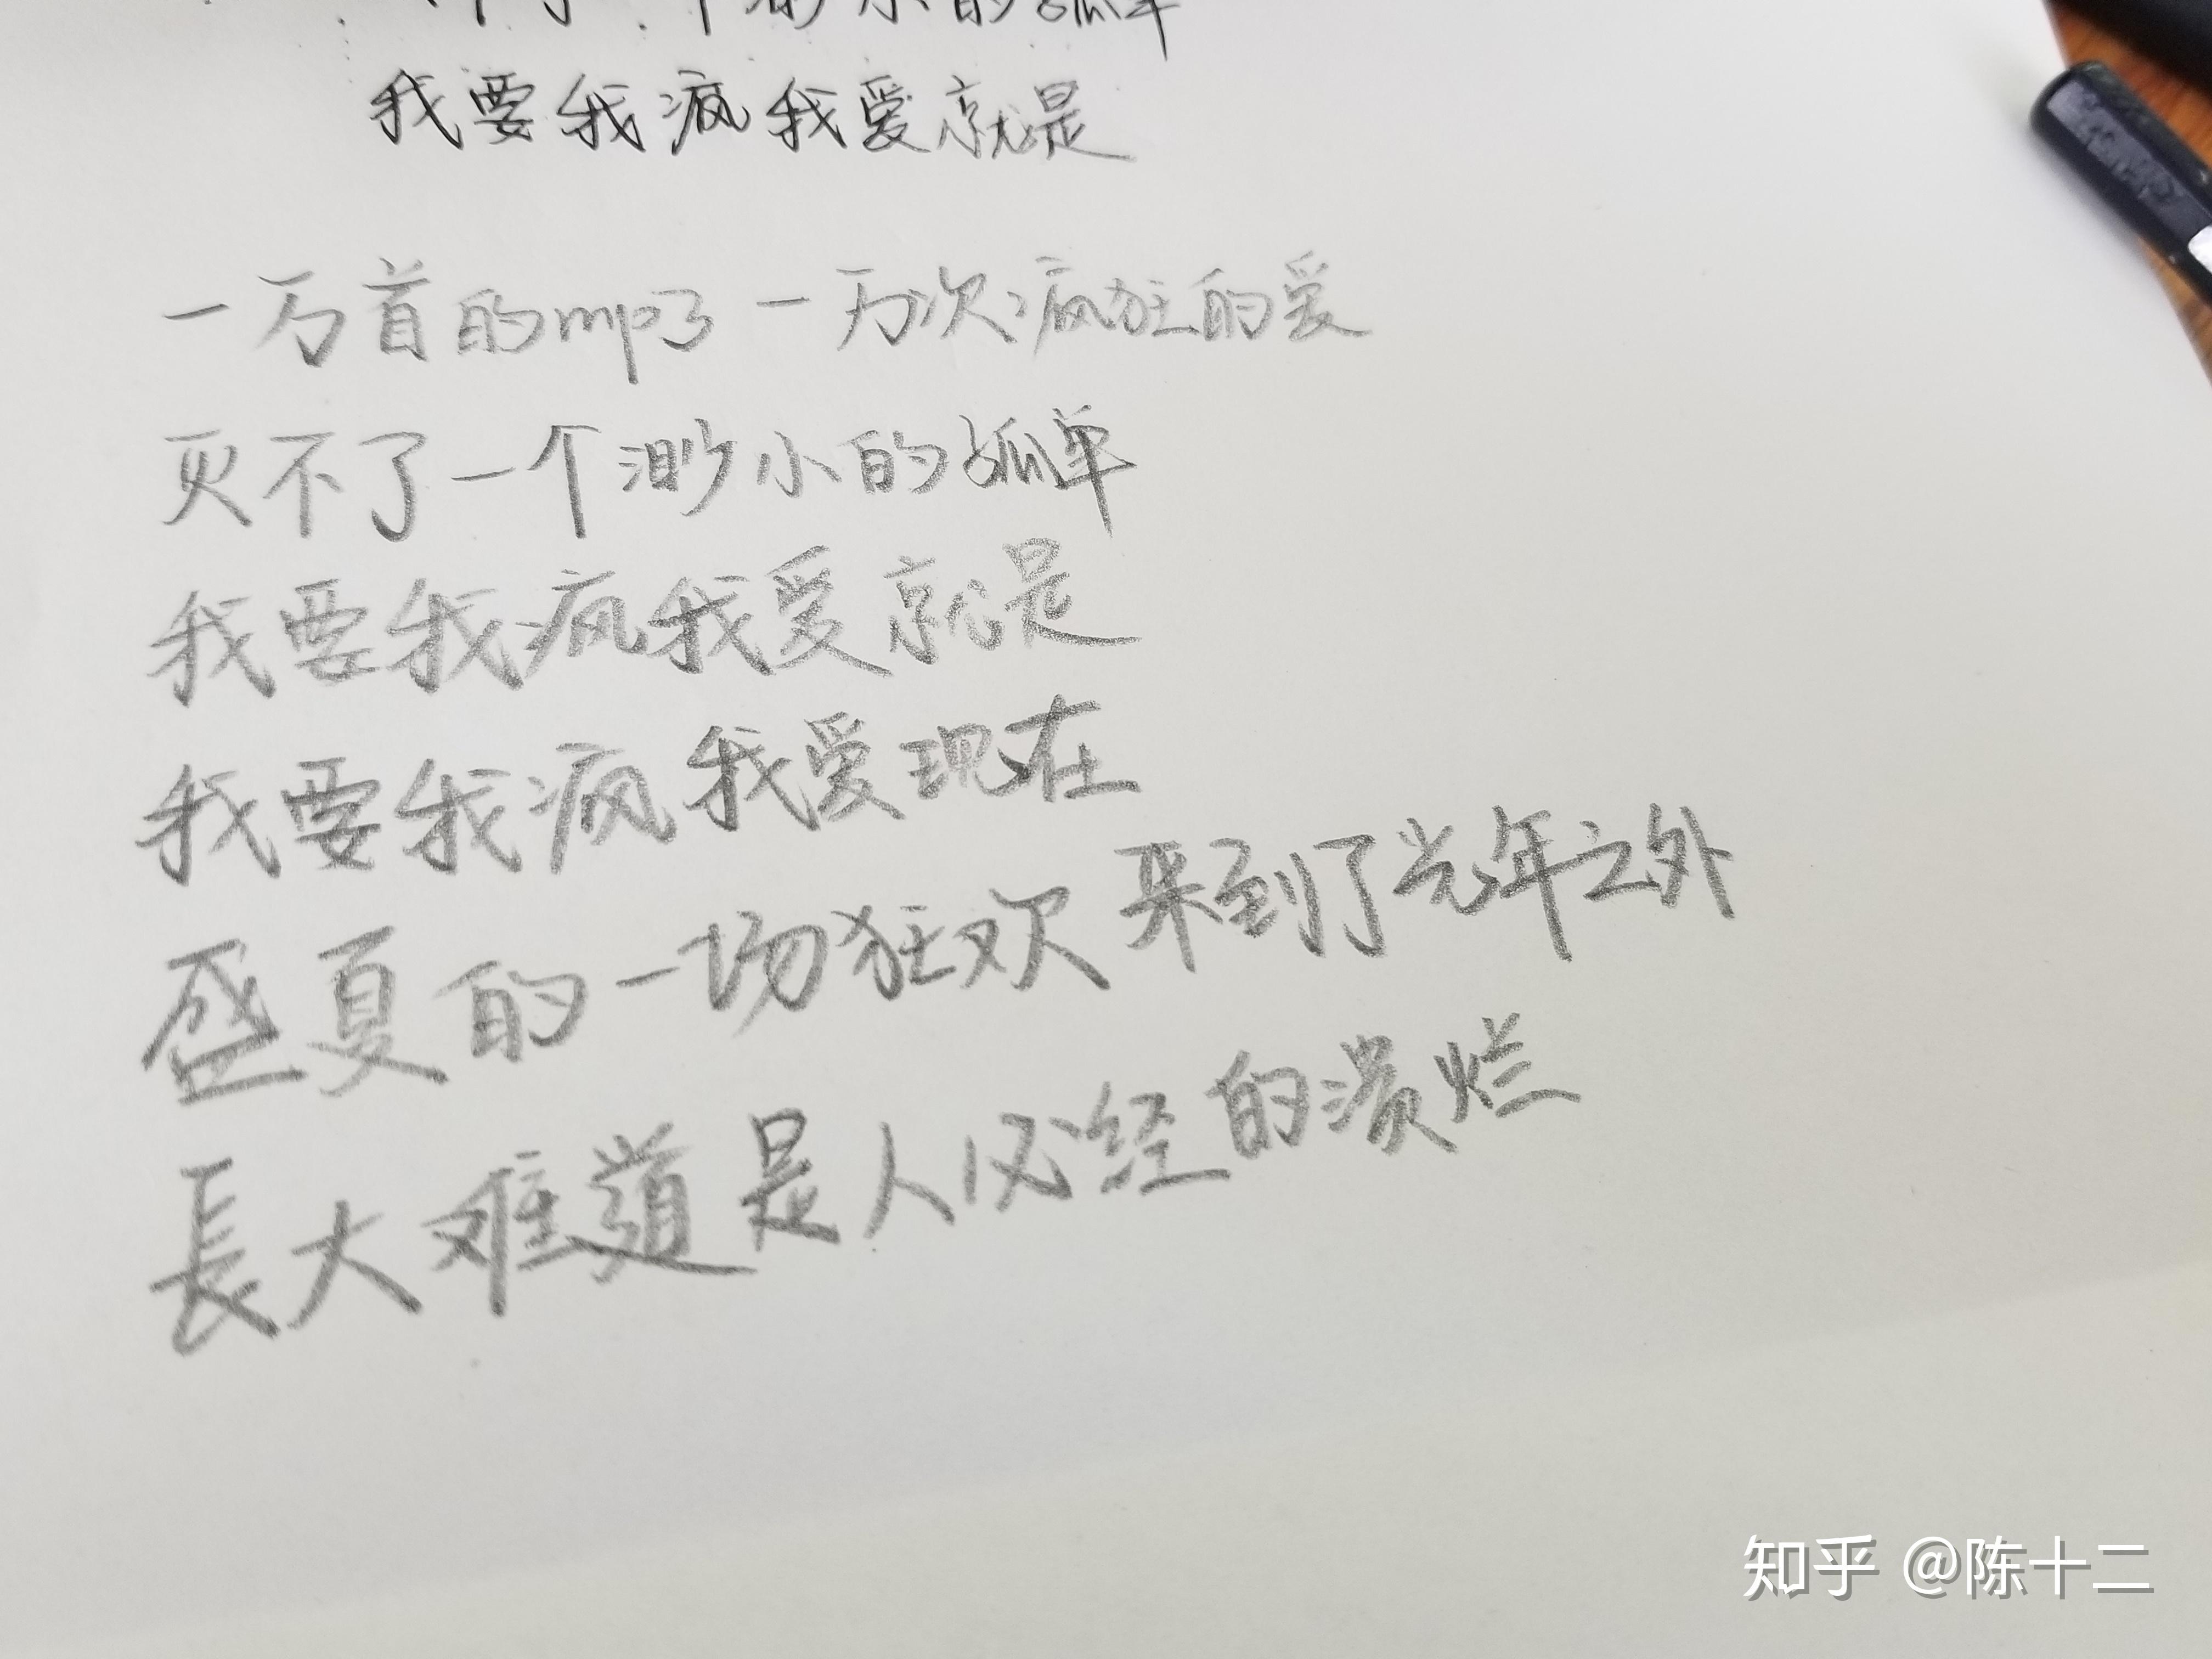 个渺小的孤单
我要我疯我爱就是
一万首的mp3 一万次疯狂的爱
灭不了一个渺小的孤单
我要我疯我爱就是
我要我疯我爱现在
盛夏的一场狂欢 来到了光年之外
長大难道是人必经的溃烂
知乎 @陈十二